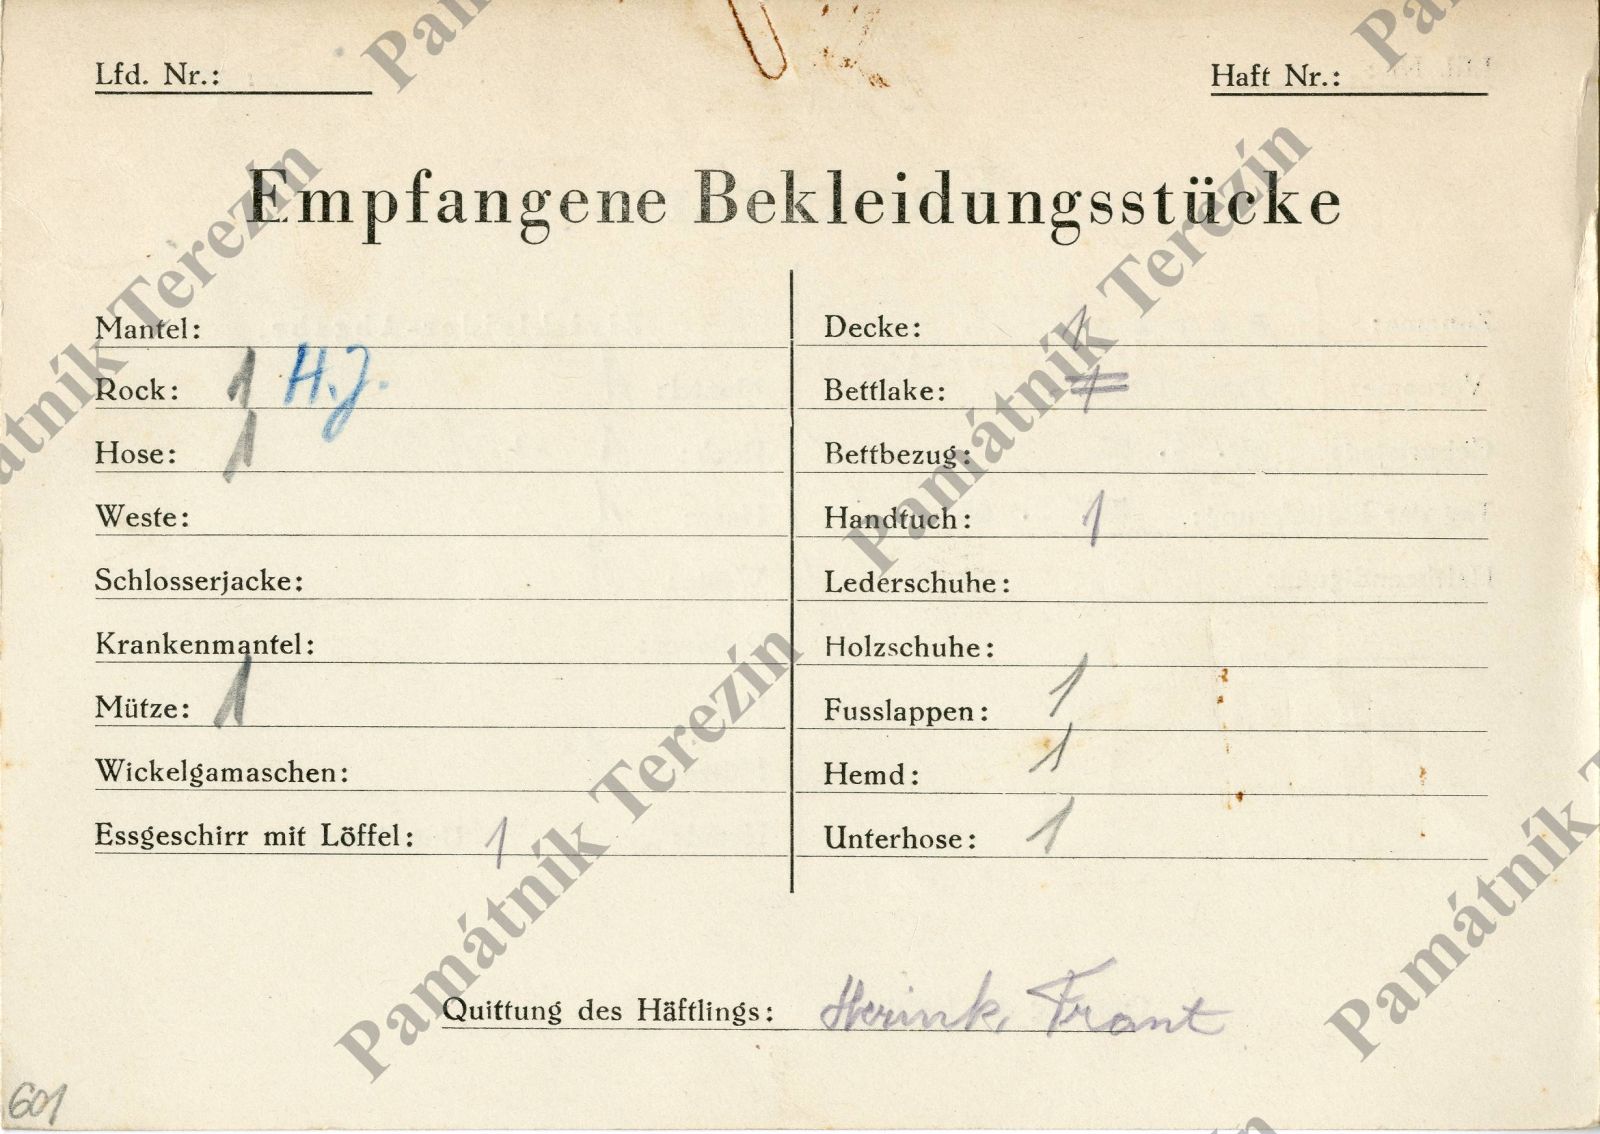 Lfd. Nr.:
Haft Nr.:
Empfangene Bekleidungsstücke
Mantel:
Rock: 1 H.J.
Hose: 1
Weste:
Schlosserjacke:
Krankenmantel:
Mütze: 1
Wickelgamaschen:
Essgeschirr mit Löffel: 1
Decke: 1
Bettlake: 1
Bettbezug:
Handtuch: 1
Lederschuhe:
Holzschuhe:
Fusslappen: 1
Hemd: 1
Unterhose: 1
Quittung des Häftlings: Herink, Frant
601
Památník Terezín
Památník Terezín
Památník Terezín
Památník Terezín